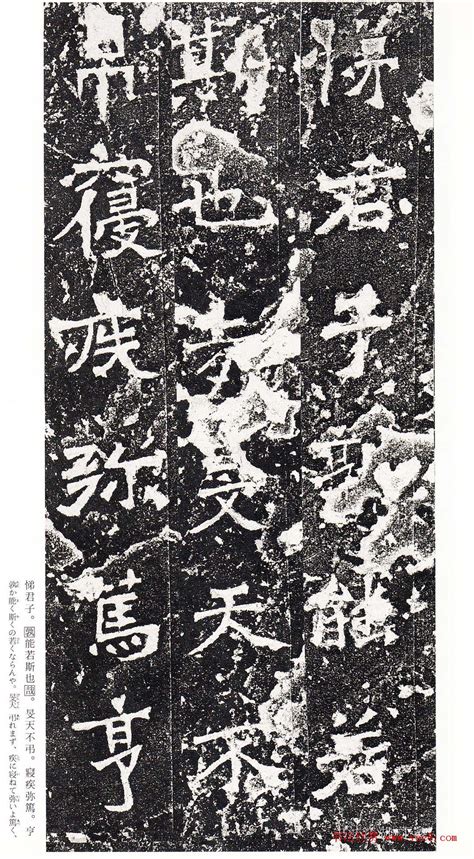 悌君子孰能若
斯也哉旻天不
弔寑疾弥篤亨
悌君子。孰能若斯也哉。旻天不弔。寝疾弥篤。亨
孰か能く斯くの若くならんや。旻天弔れまず、疾に寝ねて弥いよ篤く、